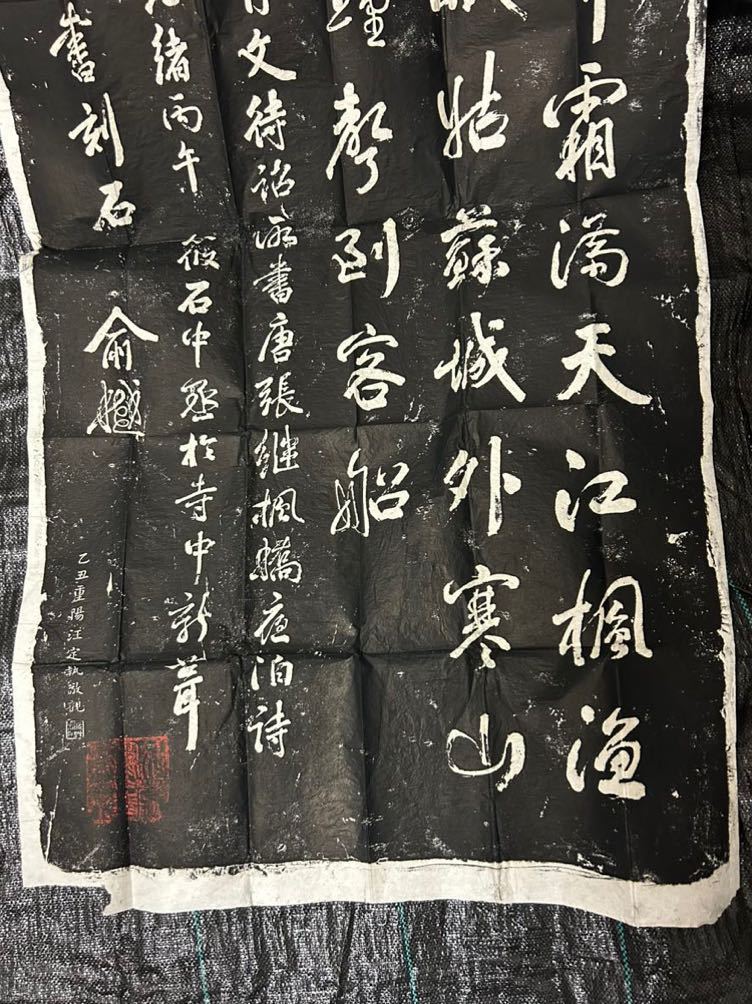 霜滿天江楓漁
姑蘇城外寒山
聲到客船
文待詔所書唐張繼楓橋夜泊詩
緒丙午筱石中丞於寺中新葺
書刻石俞樾
乙丑重陽汪定執敬觀